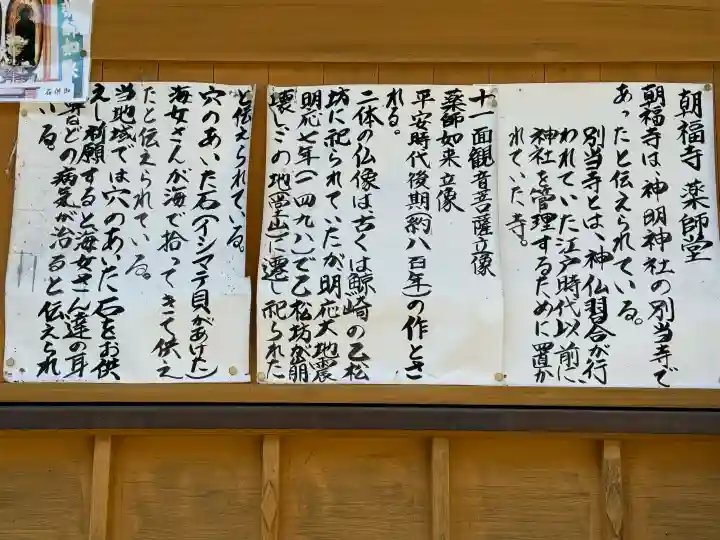 朝福寺 薬師堂
朝福寺は神明神社の別当寺で
あったと伝えられている。
別当寺とは、神仏習合が行
われていた江戸時代以前に
神社を管理するために置か
れていた寺。
十一面観音菩薩立像
薬師如来立像
平安時代後期(約八百年)の作とさ
れる。
二体の仏像は古くは鯨崎の乙松
坊に祀られていたが明応大地震
明応七年(一四九八)で乙松坊が崩
壊しこの地(堂山)に遷し祀られた
と伝えられている。
穴のあいた石(イシマテ貝があけた)
海女さんが海で拾ってきて供え
たと伝えられている。
当地域では穴のあいた石をお供
えし祈願すると海女さん達の耳
などの病気が治ると伝えられ
いる。